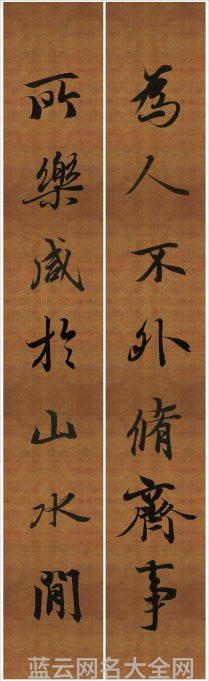 為人不外脩齊事
所樂咸於山水間
蓝云网名大全网